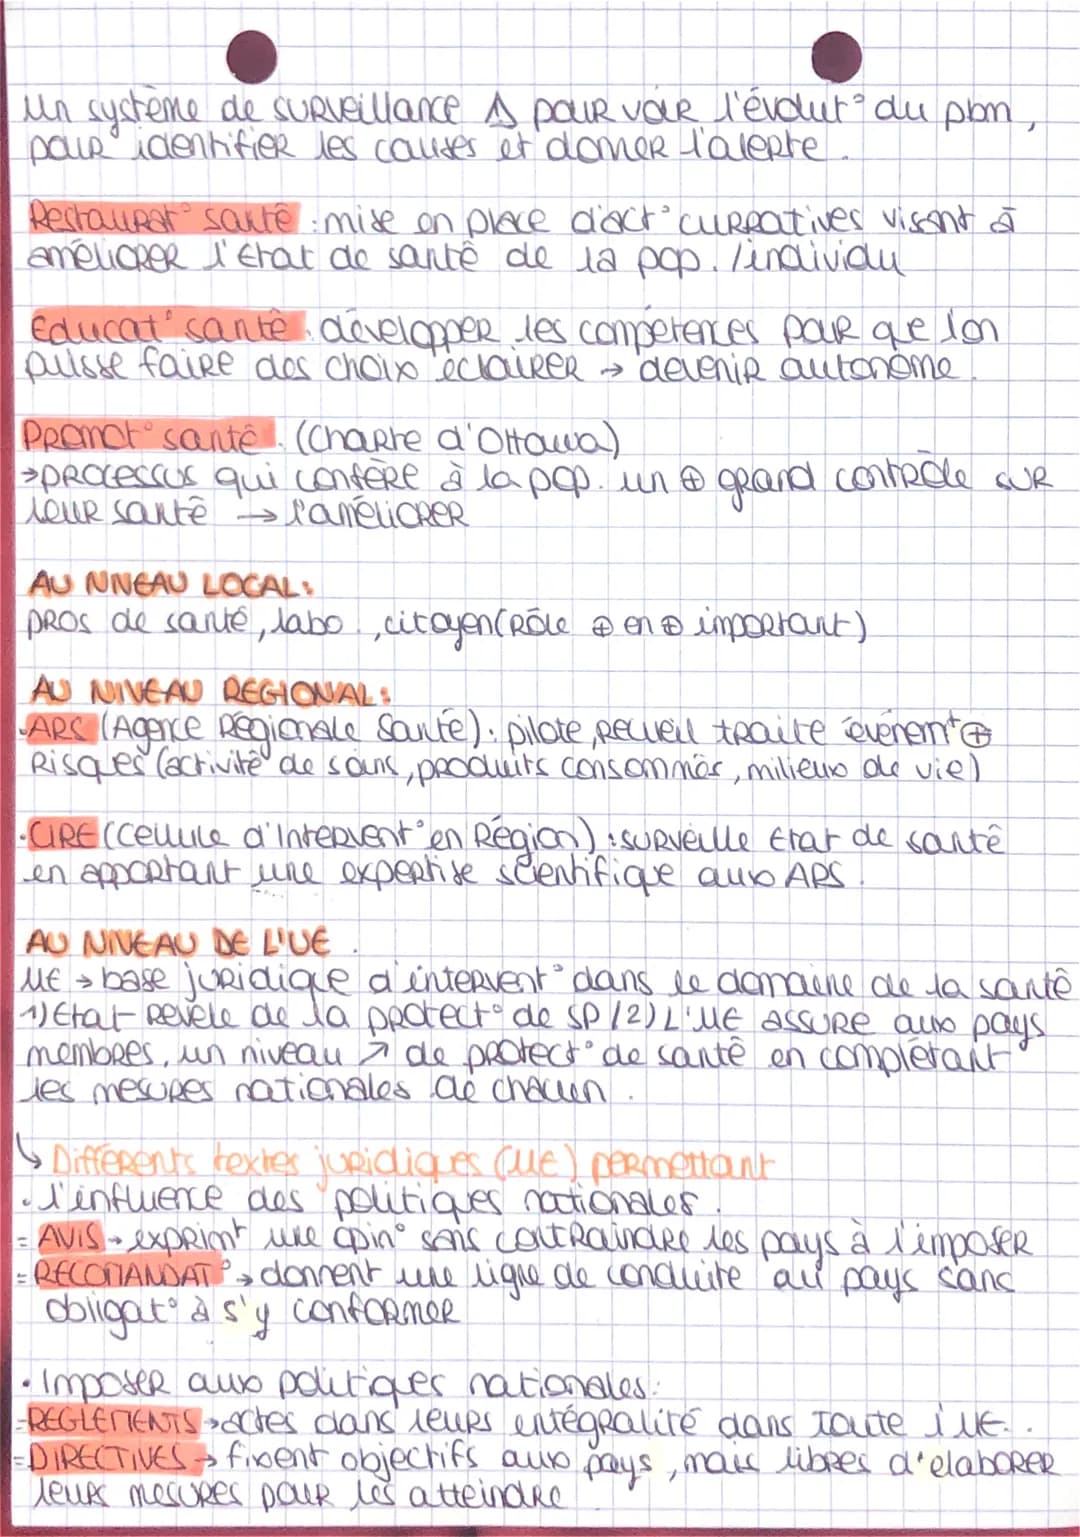 Un système de surveillance pour voir l'évolut° du pbm,
pour identifier les causes et donner l'alerte.
Restaurat° santé : mise en place d'act° curratives visant à
améliorer l'Etat de santé de la pop. /individu
Educat° santé : développer les compétences pour que l'on
puisse faire des choix éclairer → devenir autonome.
Promot° santé : (Charte d'Ottawa)
→processus qui confère à la pop. un ⊕ grand contrôle sur
leur santé → l'améliorer
AU NIVEAU LOCAL :
pros de santé, labo., citoyen (Rôle ⊕ en ⊕ important)
AU NIVEAU REGIONAL :
•ARS (Agence Régionale Santé) : pilote, recueil traite évènemt ⊕
Risques (activité de soins, produits consommés, milieux de vie)
•CIRE (Cellule d'Intervent° en Région) : surveille Etat de santé
en apportant une expertise scientifique aux ARS.
AU NIVEAU DE L'UE.
UE → base juridique d'intervent° dans le domaine de la santé
1) Etat Révèle de la protect° de SP /2) L'UE assure aux pays
membres, un niveau ↗ de protect° de santé en complétant
les mesures nationales de chacun.
↳ Différents textes juridiques (UE) permettant
• l'influence des politiques nationales.
= AVIS → exprimt une opin° sans contraindre les pays à l'imposer
= RECOMANDAT° → donnent une ligne de conduite au pays sans
obligat° à s'y conformer
• Imposer aux politiques nationales :
= REGLEMENTS → actes dans leurs intégralité dans toute l'UE..
= DIRECTIVES → fixent objectifs aux pays, mais libres d'élaborer
leurs mesures pour les atteindre